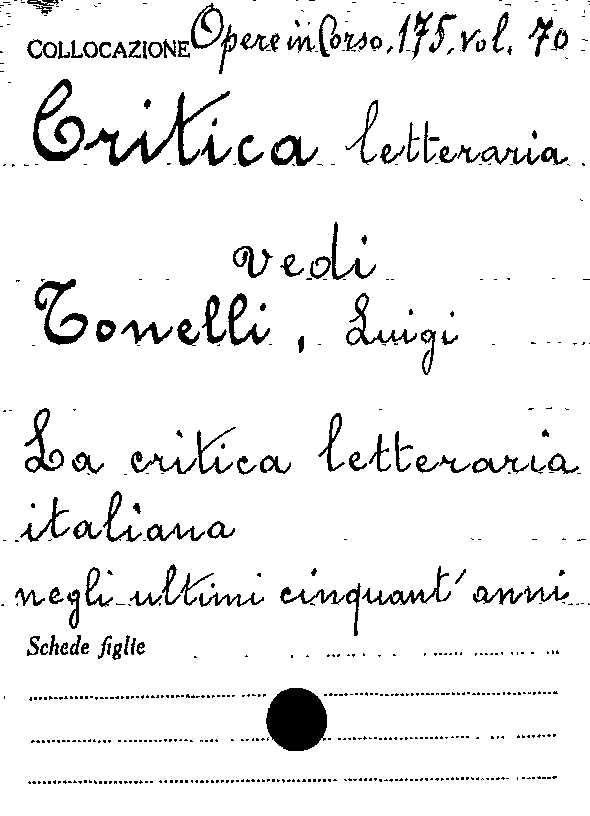 COLLOCAZIONE Opere in Corso. 175. vol. 70
Critica letteraria
vedi
Tonelli, Luigi
La critica letteraria
italiana
negli ultimi cinquant'anni
Schede figlie